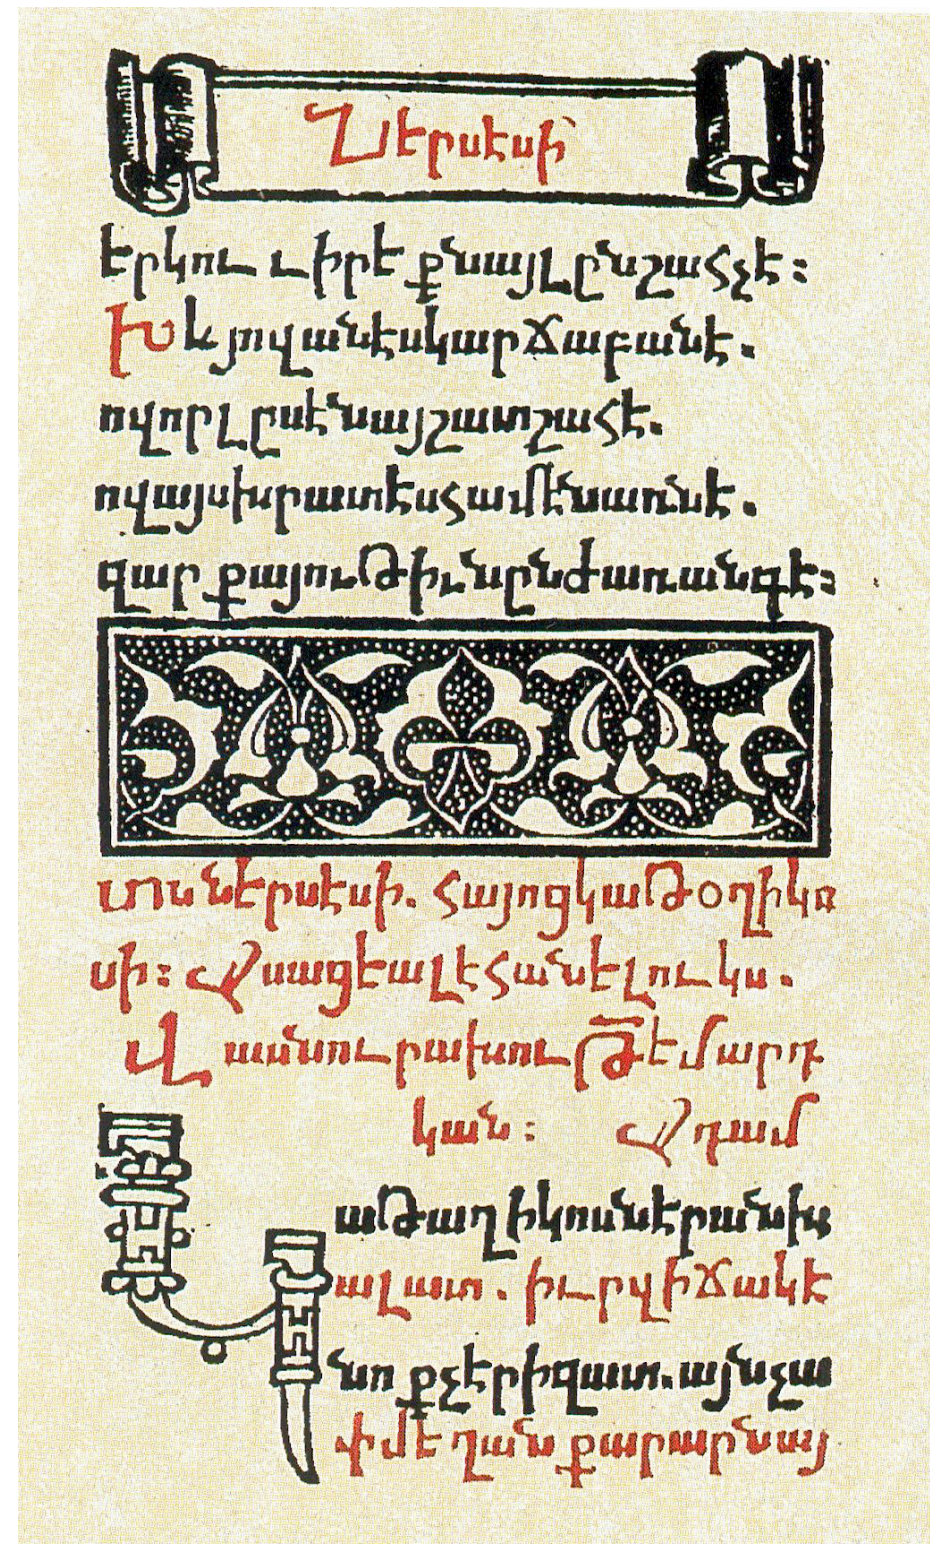 Ներսէսի
երկու տիրէ քնայլընշահչէ։
Խև յովանէսկարճաբանէ.
ովորլըսէնայշատշահէ.
ովայսխրատէսհամէնառնէ.
զարքայութիւնընժառանգէ։
տնններսէսի. հայոցկաթօղիկո
սի։ Ձսացեալէհանելուկս.
Վասնուրախութեմարդ
կան։ Ադամ
աթաղիկոսներսնխ
ալատ. իւրվիճակէ
նոքչերիզատ.այնչա
փմեղանքարարնայ